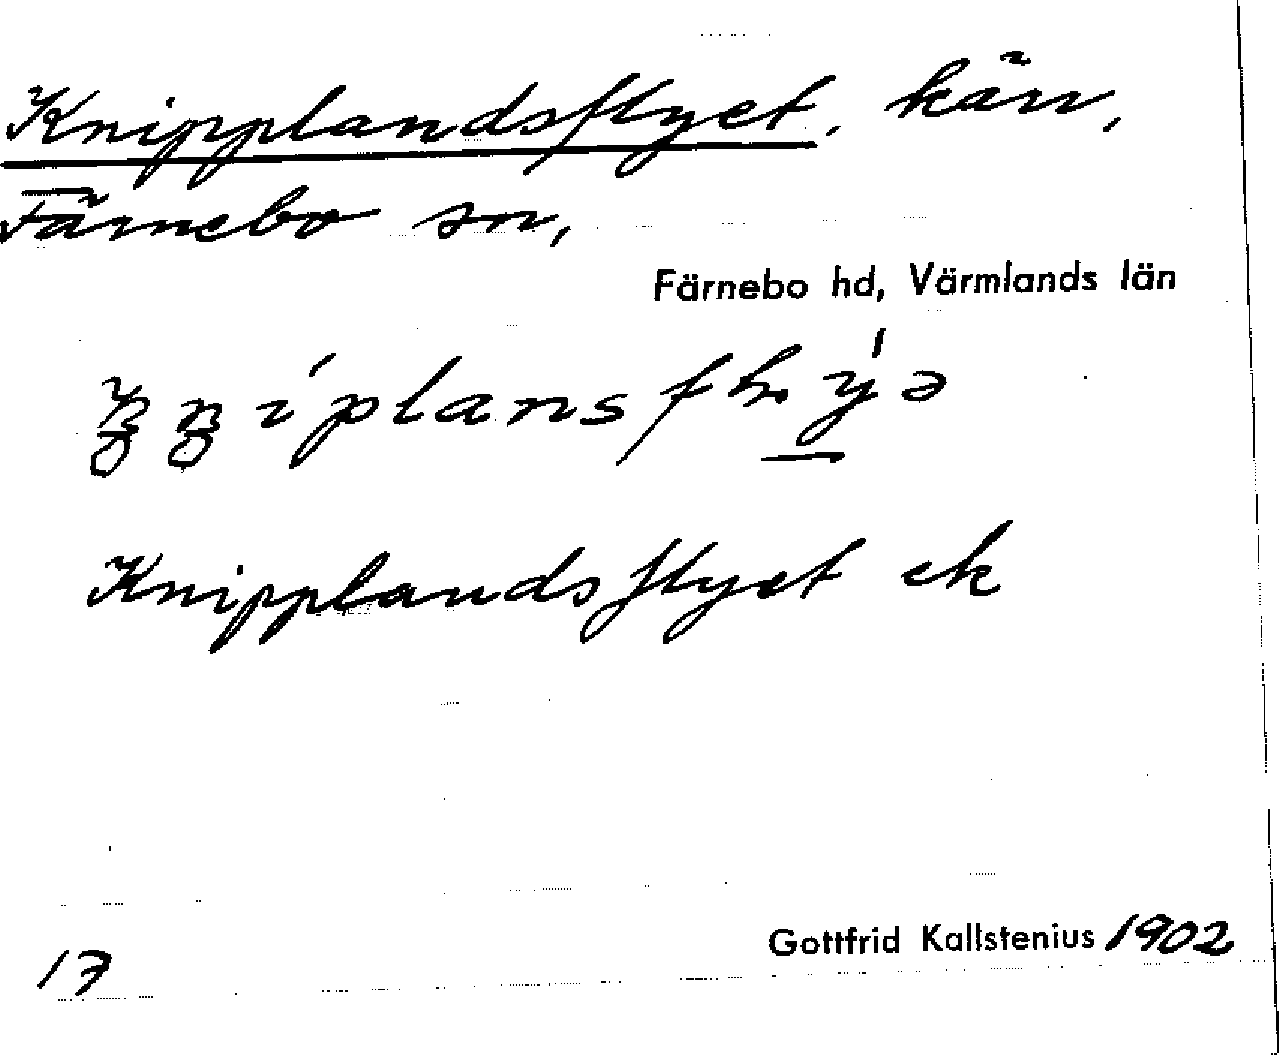 Knipplandsflyet, kärr,
Färnebo sn,
Färnebo hd, Värmlands län
Knipplandsflyet ek
17
Gottfrid Kallstenius 1902